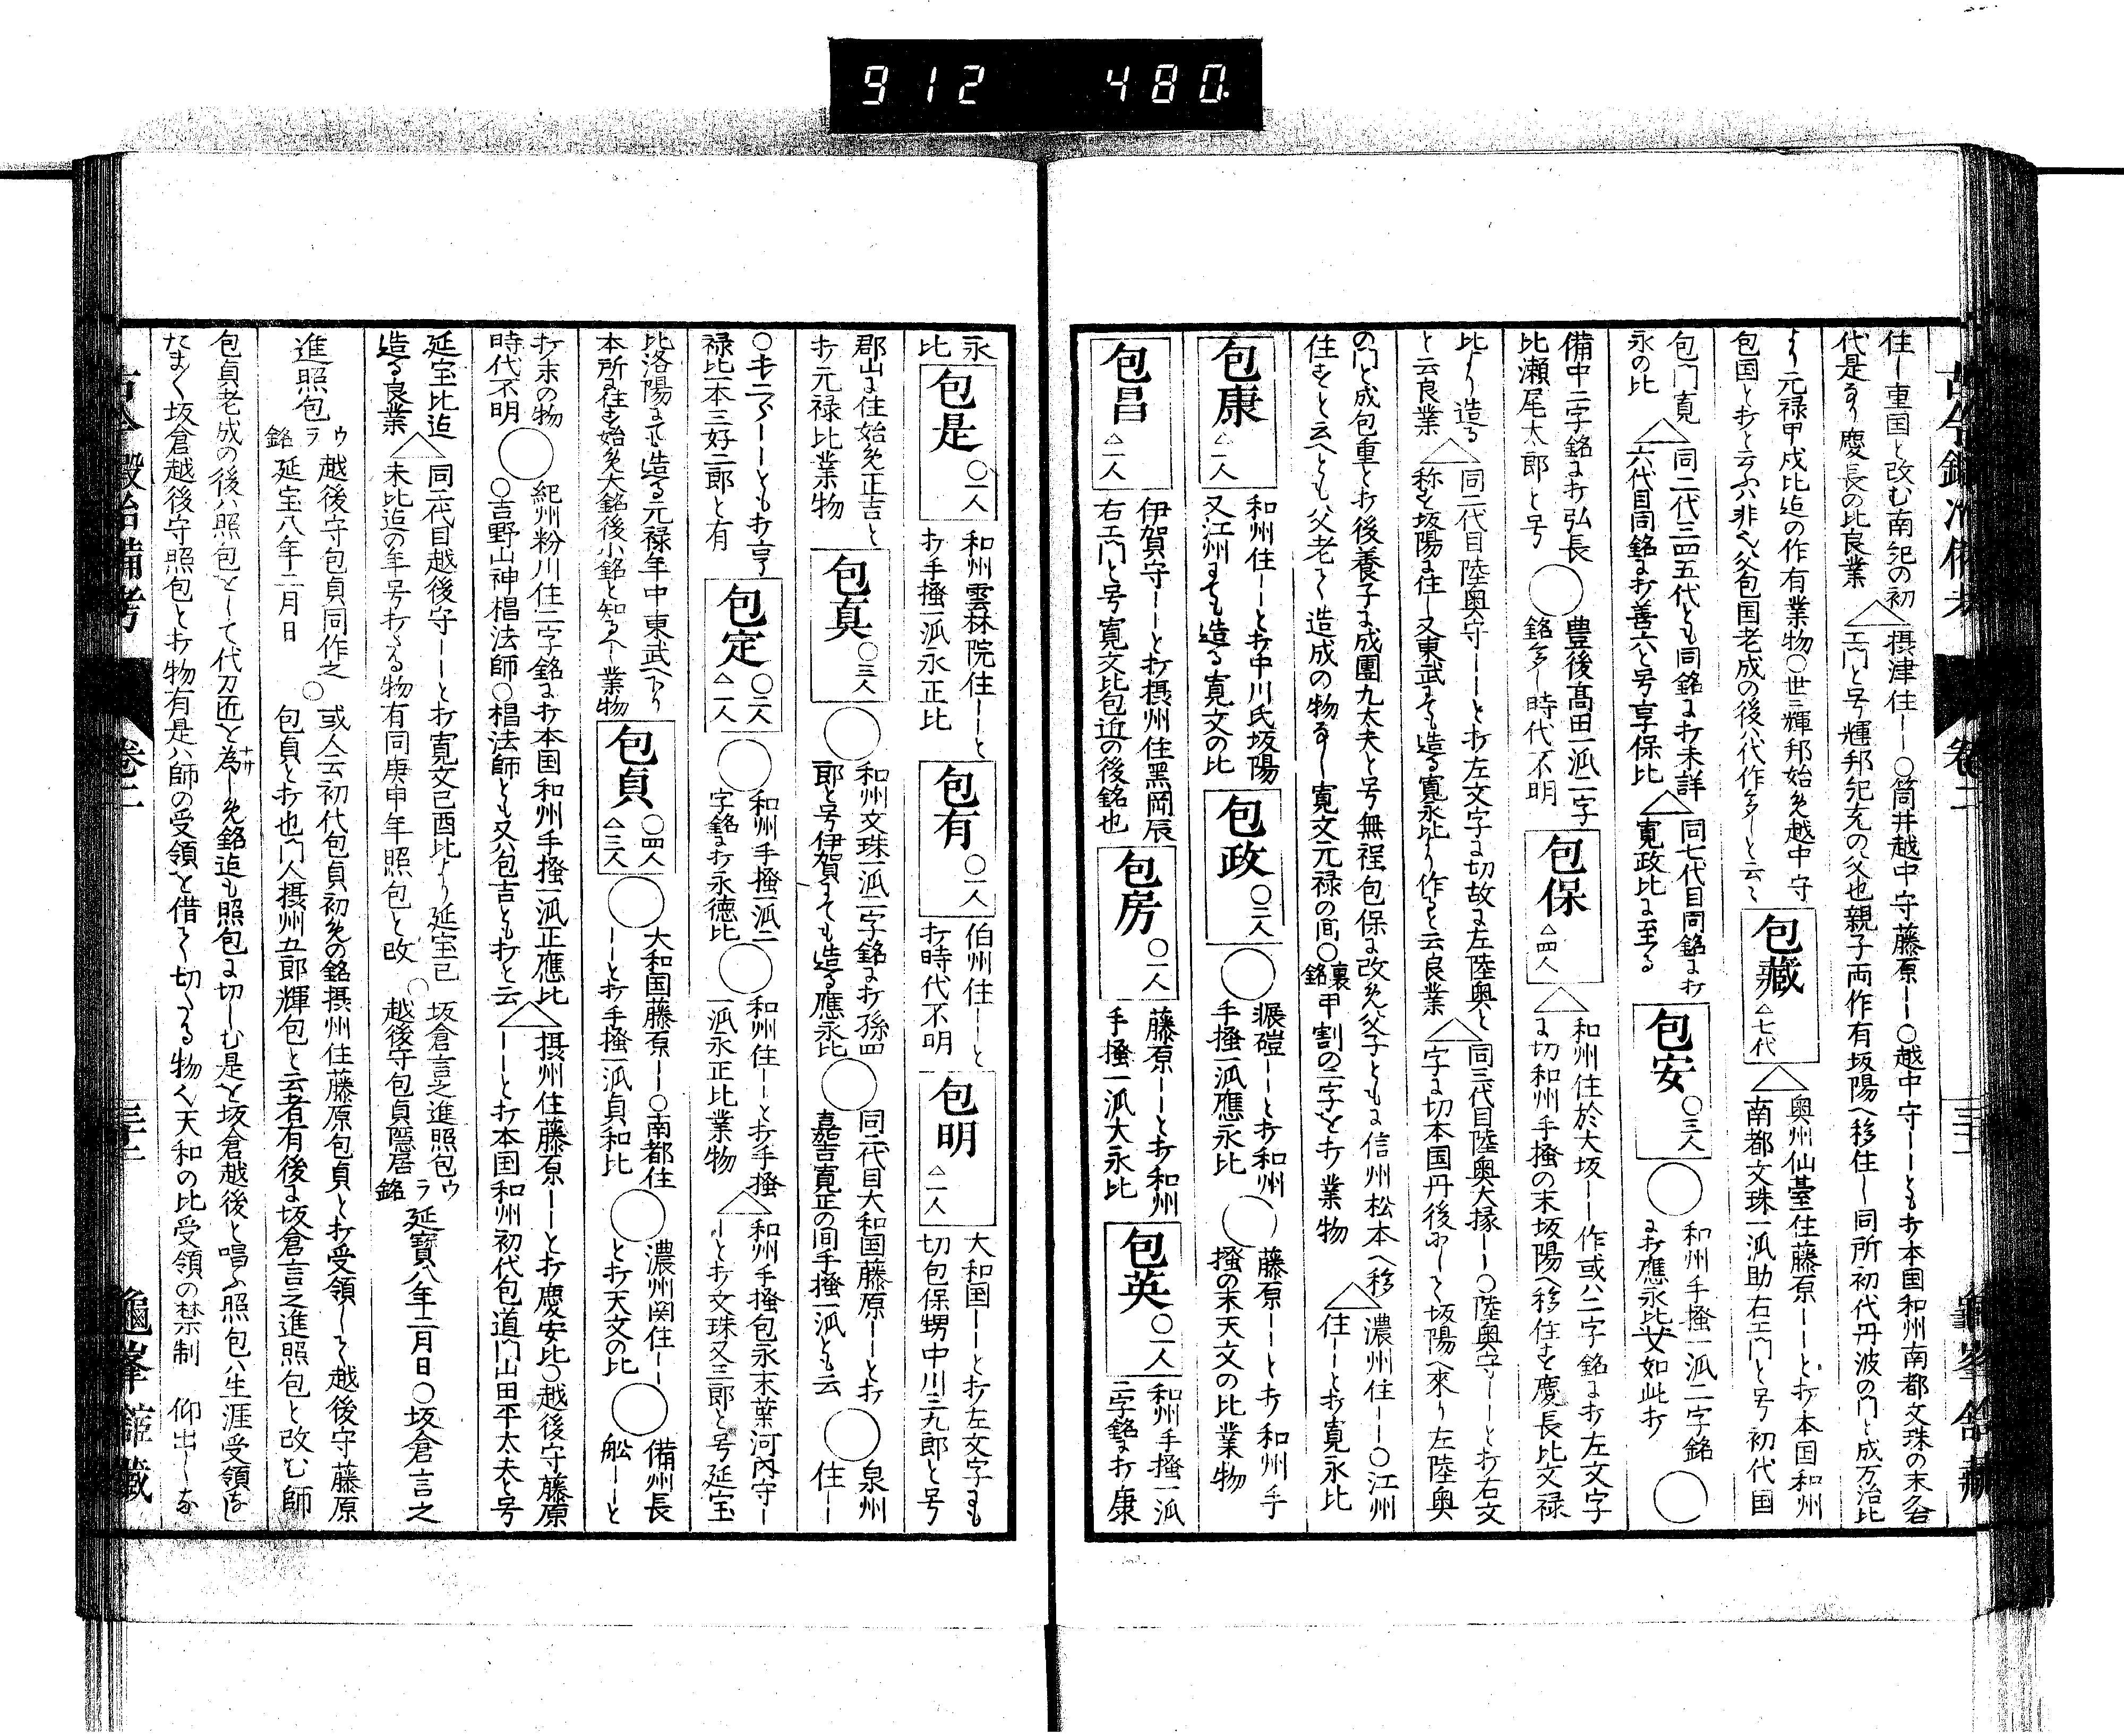 912 480
住ー重国と改む南紀の初
代是あり慶長の比良業
△摂津住ーー○筒井越中守藤原ーー○越中守ーーとも打本国和州南都文珠の末久右
エ門と号輝邦紀充の父也親子両作有坂陽へ移住ー同所初代丹波の門と成万治比
より元禄甲戌比迄の作有業物○世ニ輝邦始め越中守
包国と打と云ふハ非也父包国老成の後ハ代作多ーと云々
包蔵 △七代
△奥州仙臺住藤原ーーと打本国和州
南都文珠一派助右エ門と号初代国
包門寛
永の比
△同二代三四五代とも同銘に打未詳
六代目同銘に打善六と号享保比
△同七代目同銘に打
寛政比に至る
包安 ○三人
○和州手掻一派二字銘
に打應永比安如此打
○
備中二字銘に打弘長
比瀬尾太郎と号
○豊後髙田一派二字
銘多ー時代不明
包保 △四人
△和州住於大坂ー作或ハ二字銘に打左文字
に切和州手掻の末坂陽へ移住す慶長比文禄
比より造る
と云良業
△同二代目陸奥守ーーと打左文字に切故に左陸奥と
称す坂陽に住ー又東武にても造る寛永比より作ると云良業
△同三代目陸奥大掾ーー○陸奥守ーーと打右文
字に切本国丹後にーて坂陽へ來り左陸奥
の門と成包重と打後養子に成團九太夫と号無裎包保に改め父子ともに信州松本へ移
住すと云へとも父老て造成の物多ー寛文元禄の間○裏銘甲割の二字を打業物
△濃州住ーー○江州
住ーと打寛永比
包康 △二人
和州住ーーと打中川氏坂陽
又江州にても造る寛文の比
包政 ○三人
○ーーと打和州
手掻一派應永比
○藤原ーーと打和州手
掻の末天文の比業物
包昌 △一人
伊賀守ーーと打摂州住黒岡辰
右エ門と号寛文比包近の後銘也
包房 ○一人
藤原ーーと打和州
手掻一派大永比
包英 ○一人
和州手掻一派
二字銘に打康
永
比
包是 ○一人
和州雲林院住ーーと
打手掻一派永正比
包有 ○一人
伯州住ーーと
打時代不明
包明 △一人
大和国ーーと打左文字にも
切包保甥中川三九郎と号
郡山に住始め正吉と
打元禄比業物
包真 ○三人
○和州文珠一派二字銘に打孫四
郎と号伊賀にても造る應永比
○同二代目大和国藤原ーーと打
嘉吉寛正の間手掻一派とも云
○泉州
住ー
ーーとも打亨
禄比一本三好二郎と有
包定 ○二人 △二人
○和州手掻一派二
字銘に打永徳比
○和州住ーーと打手掻
一派永正比業物
△和州手掻包永末葉河内守ー
ーと打文珠又三郎と号延宝
比洛陽にても造る元禄年中東武へ下り
本所に住す始め大銘後小銘と知るへー業物
包貞 ○四人 △三人
○大和国藤原ーー○南都住
ーーと打手掻一派貞和比
○濃州関住ーー
と打天文の比
○備州長
舩ーーと
打末の物
時代不明
○紀州粉川住二字銘に打本国和州手掻一派正應比
○吉野山神椙法師○椙法師とも又ハ包吉とも打と云
△摂州住藤原ーーと打慶安比○越後守藤原
ーーと打本国和州初代包道門山田平太夫と号
延宝比迄
造る良業
△同二代目越後守ーーと打寛文己酉比より延宝己
未比迄の年号打たる物有同庚申年照包と改
○坂倉言之進照包ウラ銘延寶八年二月日○坂倉言之
越後守包貞隠居
進照包
ウラ銘
越後守包貞同作之
延宝八年二月日
○或人云初代包貞初めの銘摂州住藤原包貞と打受領ーて越後守藤原
包貞と打也門人摂州五郎輝包と云者有後に坂倉言之進照包と改む師
包貞老成の後ハ照包をーて代刀迄を為ーめ銘迄も照包に切ーむ是を坂倉越後と唱ふ照包ハ生涯受領を
たまく坂倉越後守照包と打物有是ハ師の受領を借て切たる物也天和の比受領の禁制 仰出ーな
古今鍛冶備考 卷二 龜峯舘藏